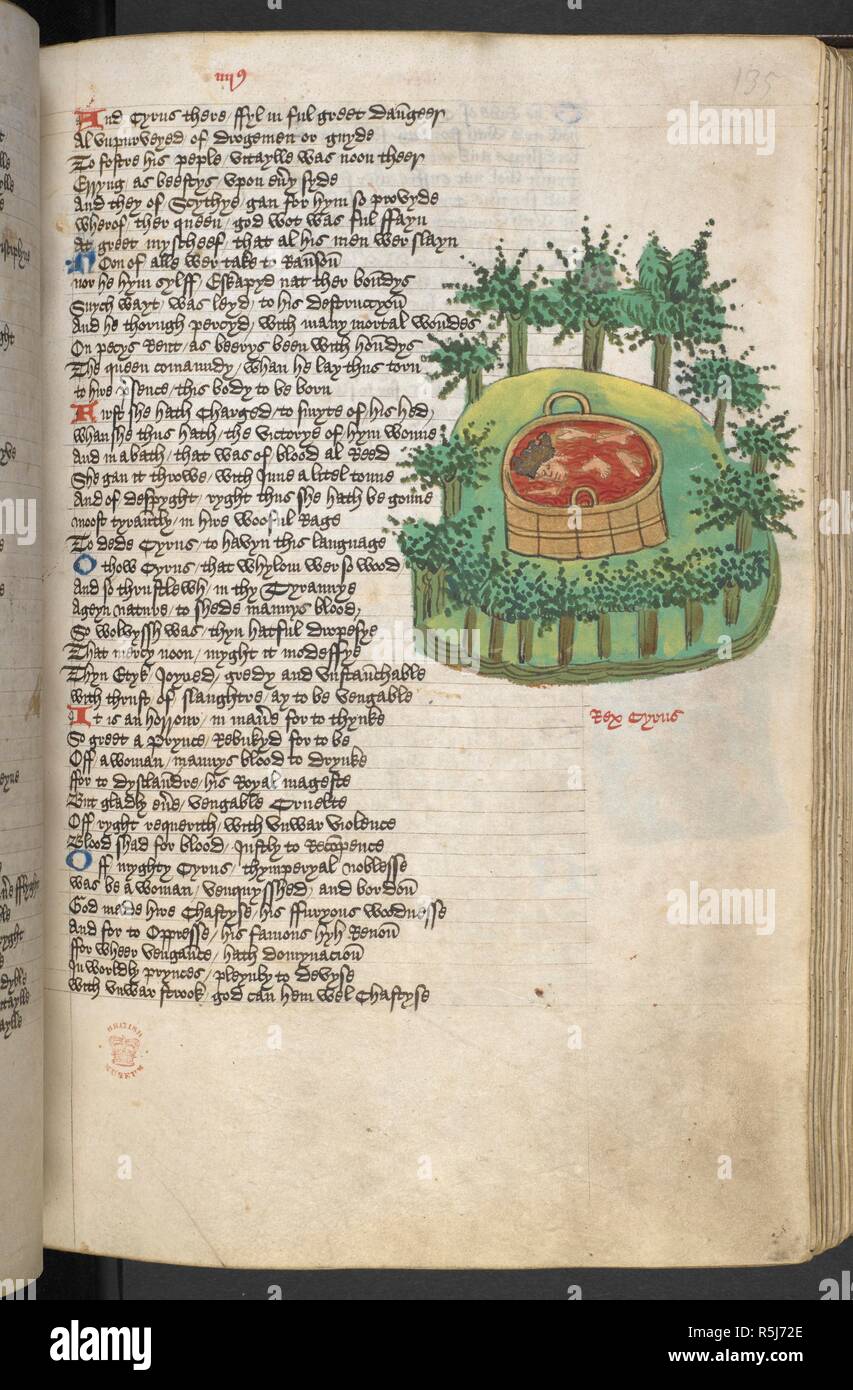 iiij9
135
And Cyrus there / ffyl in ful greet daūgeer
Al vnpurveyed of drogemen or guyde
To fostre his peple / vitaylle was noon theer
Erryng / as beestys / vpon eūy syde
And they of Scythye / gan for hym so provyde
wherof / ther queen / god wot was ful ffayn
At greet myscheef / that al his men wer slayn
Noon of alle wer take to Raūsoū
nor he hym sylff / Eskapyd nat ther boundys
Suych wayt / was leyd / to his destruccyoū
And he thorugh percyd / with many mortal woūdes
On pecys Rent / as beerys been with hoūdys
The queen comaundy / whan he lay thus torn
to hire presence / this body to be born
First she hath Charged / to smyte of / his hed /
whan she thus hath / the victorye of hym wonne
And in a bath / that was of blood al Reed
She gan it throwe / with Inne a litel tonne
And of despyght / ryght thus she hath be gonne
moost tyrantly / in hire wooful Rage
To dede Cyrus / to havyn this language
O thow Cyrus / that whylom wer so wood /
And so thrustlewh / in thy Tyrannye
Ageyn nature / to shede mannys blood /
So wolvyssh was / thyn hatful dropesye
That mercy noon / myght it modeffye
Thyn Etyk / Joyned / gredy and vnstaūchable
with thrust of slaughtre / ay to be vengable
It is an horrour / in man̄e for to thynke
So greet a Prynce / Rebukyd for to be
Off a woman / mannys blood to drynke
ffor to dysclaūdre / his Royal mageste
But gladly eūe / vengable Cruelte
Off ryght requerith / with vnwar violence
Blood shad for blood / Justly to Recōpence
Off myghty Cyrus / thymperyal noblesse
was be a woman / venquysshed / and bordoū
God made hire Chastyse / his ffuryous woodnesse
And for to Oppresse / his famous hyh Renoū
ffor wheer vengaūce / hath domynacioū
In worldly prynces / pleynly to devyse
with vnwar strook / god can hem wel Chastyse
Rex Cyrus
BRITISH
MUSEUM
alamy
Image ID: R5J72E
www.alamy.com